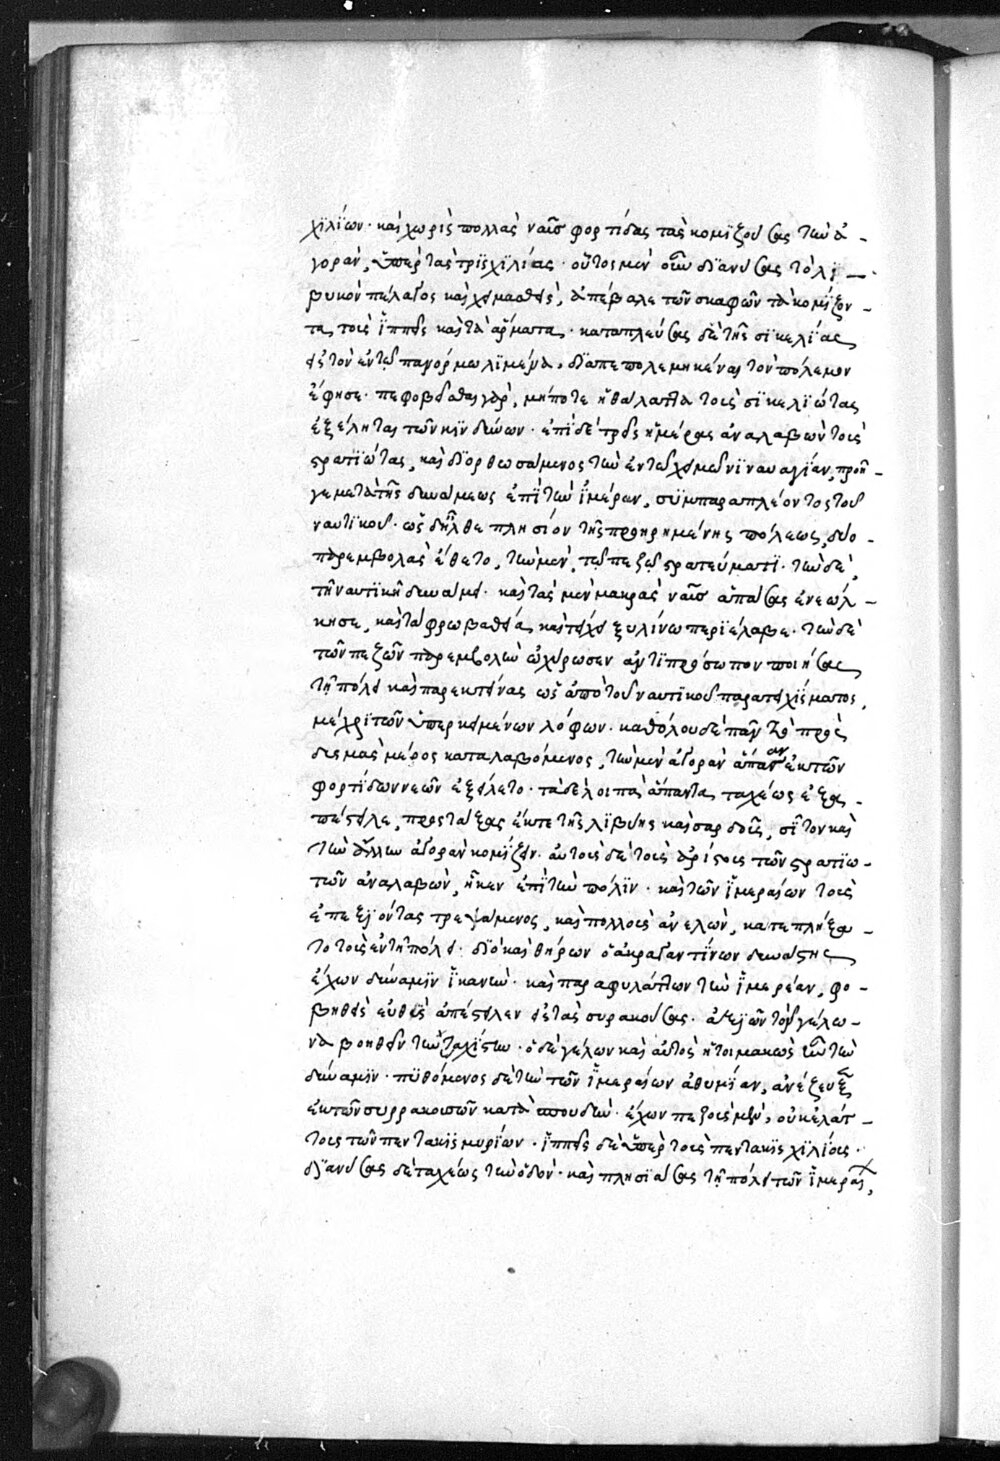 χϊλϊων· καὶ χωρὶς πολλὰς ναῦς φορτίδας τὰς κομϊζούσας τὴν ἀ-
γορὰν, ὑπὲρ τὰς τρϊσχϊλίας· οὗτος μὲν οὖν δϊανύσας τὸ λϊ-
βυκὸν πέλαγος καὶ χειμασθεὶς, ἀπέβαλε τῶν σκαφῶν τὰ κομίζον-
τα τοὺς ἵππεις καὶ τὰ ἅρματα· καταπλεύσας δὲ τῆς σϊκελΐας
εἰς τὸν ἐν τῷ πανόρμω λϊμένα, δϊαπεπολεμηκέναι τὸν πόλεμον
ἔφησε· πεφοβεῖσθαι γὰρ, μήποτε ἡ θάλαττα τοὺς σϊκελϊώτας
ἐξέληται τῶν κϊνδύνων· ἐπὶ δὲ τρεῖς ἡμέρας ἀναλαβὼν τοὺς
στρατϊώτας, καὶ δϊορθωσάμενος τὴν ἐν τῷ χειμῶνϊ ναυαγΐαν, προῆ-
γε μετὰ τῆς δυνάμεως ἐπὶ τὴν ἱμέραν, συμπαραπλέοντος τοῦ
ναυτϊκοῦ· ὡς δ' ἦλθε πλησίον τῆς προηρημένης πόλεως, δύο
παρεμβολὰς ἔθετο, τὴν μὲν, τῷ πεζῷ στρατεύματϊ· τὴν δὲ,
τῆ ναυτϊκῆ δυνάμει· καὶ τὰς μὲν μακρὰς ναῦς ἁπάσας ἐνεώλ-
κησε, καὶ τάφρω βαθείᾳ, καὶ τείχει ξυλίνω περϊέλαβε· τὴν δὲ
τῶν πεζῶν παρεμβολὴν ὠχύρωσεν ἀντϊπρόσωπον ποιήσας
τῆ πόλει καὶ παρεκτείνας ὡς ἀπὸ τοῦ ναυτϊκοῦ παρατειχΐσματος,
μέχρϊ τῶν ὑπερκειμένων λόφων· καθόλου δὲ πᾶν τὸ πρὸς
δυσμὰς μέρος καταλαβόμενος, τὴν μὲν ἀγορὰν ἅπασαν ἐκ τῶν
φορτΐδων νεῶν ἐξείλετο· τὰ δὲ λοιπὰ ἅπαντα ταχέως ἐξα-
πέστειλε, προστάξας ἔκ τε τῆς λϊβύης καὶ σαρδοῦς, σῖτον καὶ
τὴν ἄλλην ἀγορὰν κομΐζειν· αὐτοὺς δὲ τοὺς ἀρίστους τῶν στρατϊω-
τῶν ἀναλαβὼν, ἧκεν ἐπὶ τὴν πόλϊν· καὶ τῶν ἱμεραίων τοὺς
ἐπεξϊόντας τρεψάμενος, καὶ πολλοὺς ἀνελὼν, κατεπλήξα-
το τοὺς ἐν τῆ πόλει· δϊὸ καὶ θήρων ὁ ἀκραγαντΐνων δυνάστης
ἔχων δύναμϊν ἱκανὴν· καὶ παραφυλάττων τὴν ἱμερέαν, φο-
βηθεὶς εὐθὺς ἀπέστειλεν εἰς τὰς συρακούσας· ἀξϊῶν τὸν γέλω-
να βοηθεῖν τὴν ταχίστην· ὁ δὲ γέλων καὶ αὐτὸς ἡτοιμακὼς ὢν τὴν
δύναμϊν· πϋθόμενος δὲ τὴν τῶν ἱμεραίων ἀθυμΐαν, ἀνέζευξεν
ἐκ τῶν συρρακουσῶν κατὰ σπουδὴν· ἔχων πεζοὺς μὲν, οὐκ ἐλάτ-
τους τῶν πεντακϊσμυρΐων· ἵππεις δὲ ὑπὲρ τοὺς πεντακϊσχϊλΐους·
δϊανύσας δὲ ταχέως τὴν ὁδὸν· καὶ πλησϊάσας τῆ πόλει τῶν ἱμεραί,